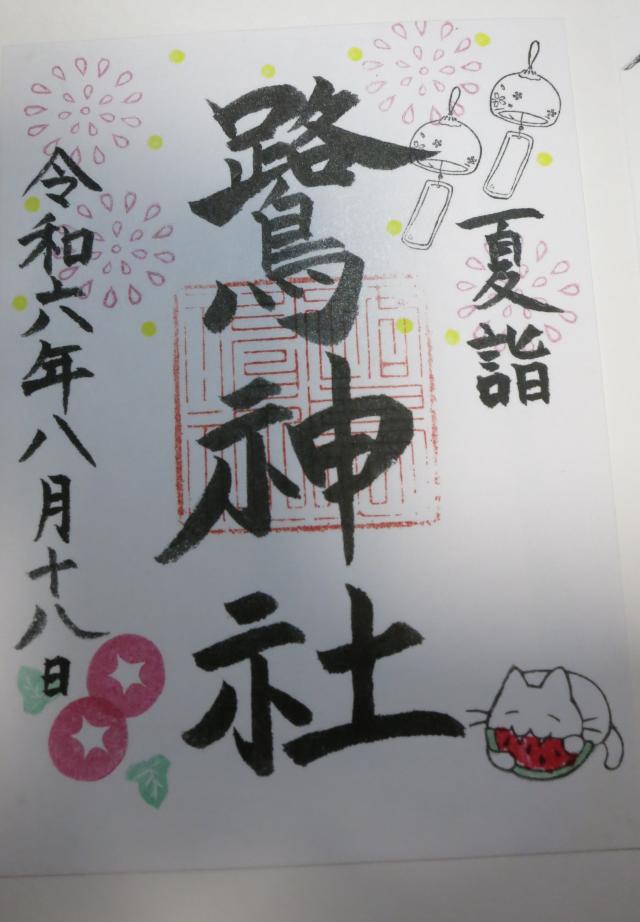 夏詣
鷺神社
令和六年八月十八日